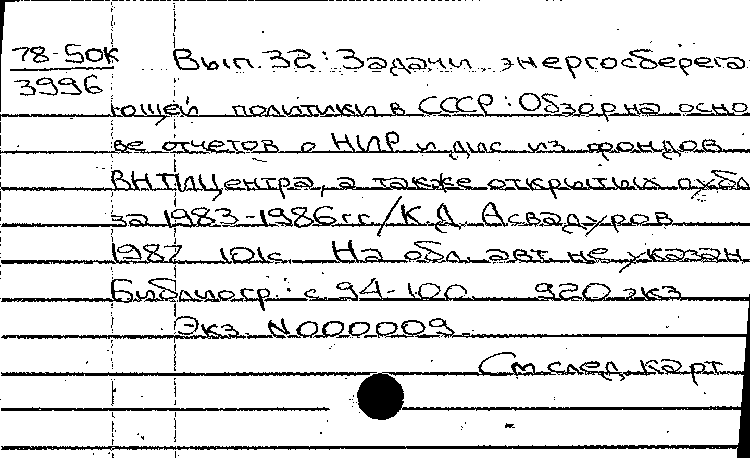 78-50К Вып. 32: Задачи энергосберега
3996
ющей политики в СССР: Обзор на осно
ве отчетов о НИР и дис из фондов
ВНТИЦентра, а также открытых публ
за 1983-1986 гг. / К.Д. Асвадуров
1987 101с На обл. авт. не указан
Библиогр.: с 94-100 920 экз
Экз. N000009
См. след. карт